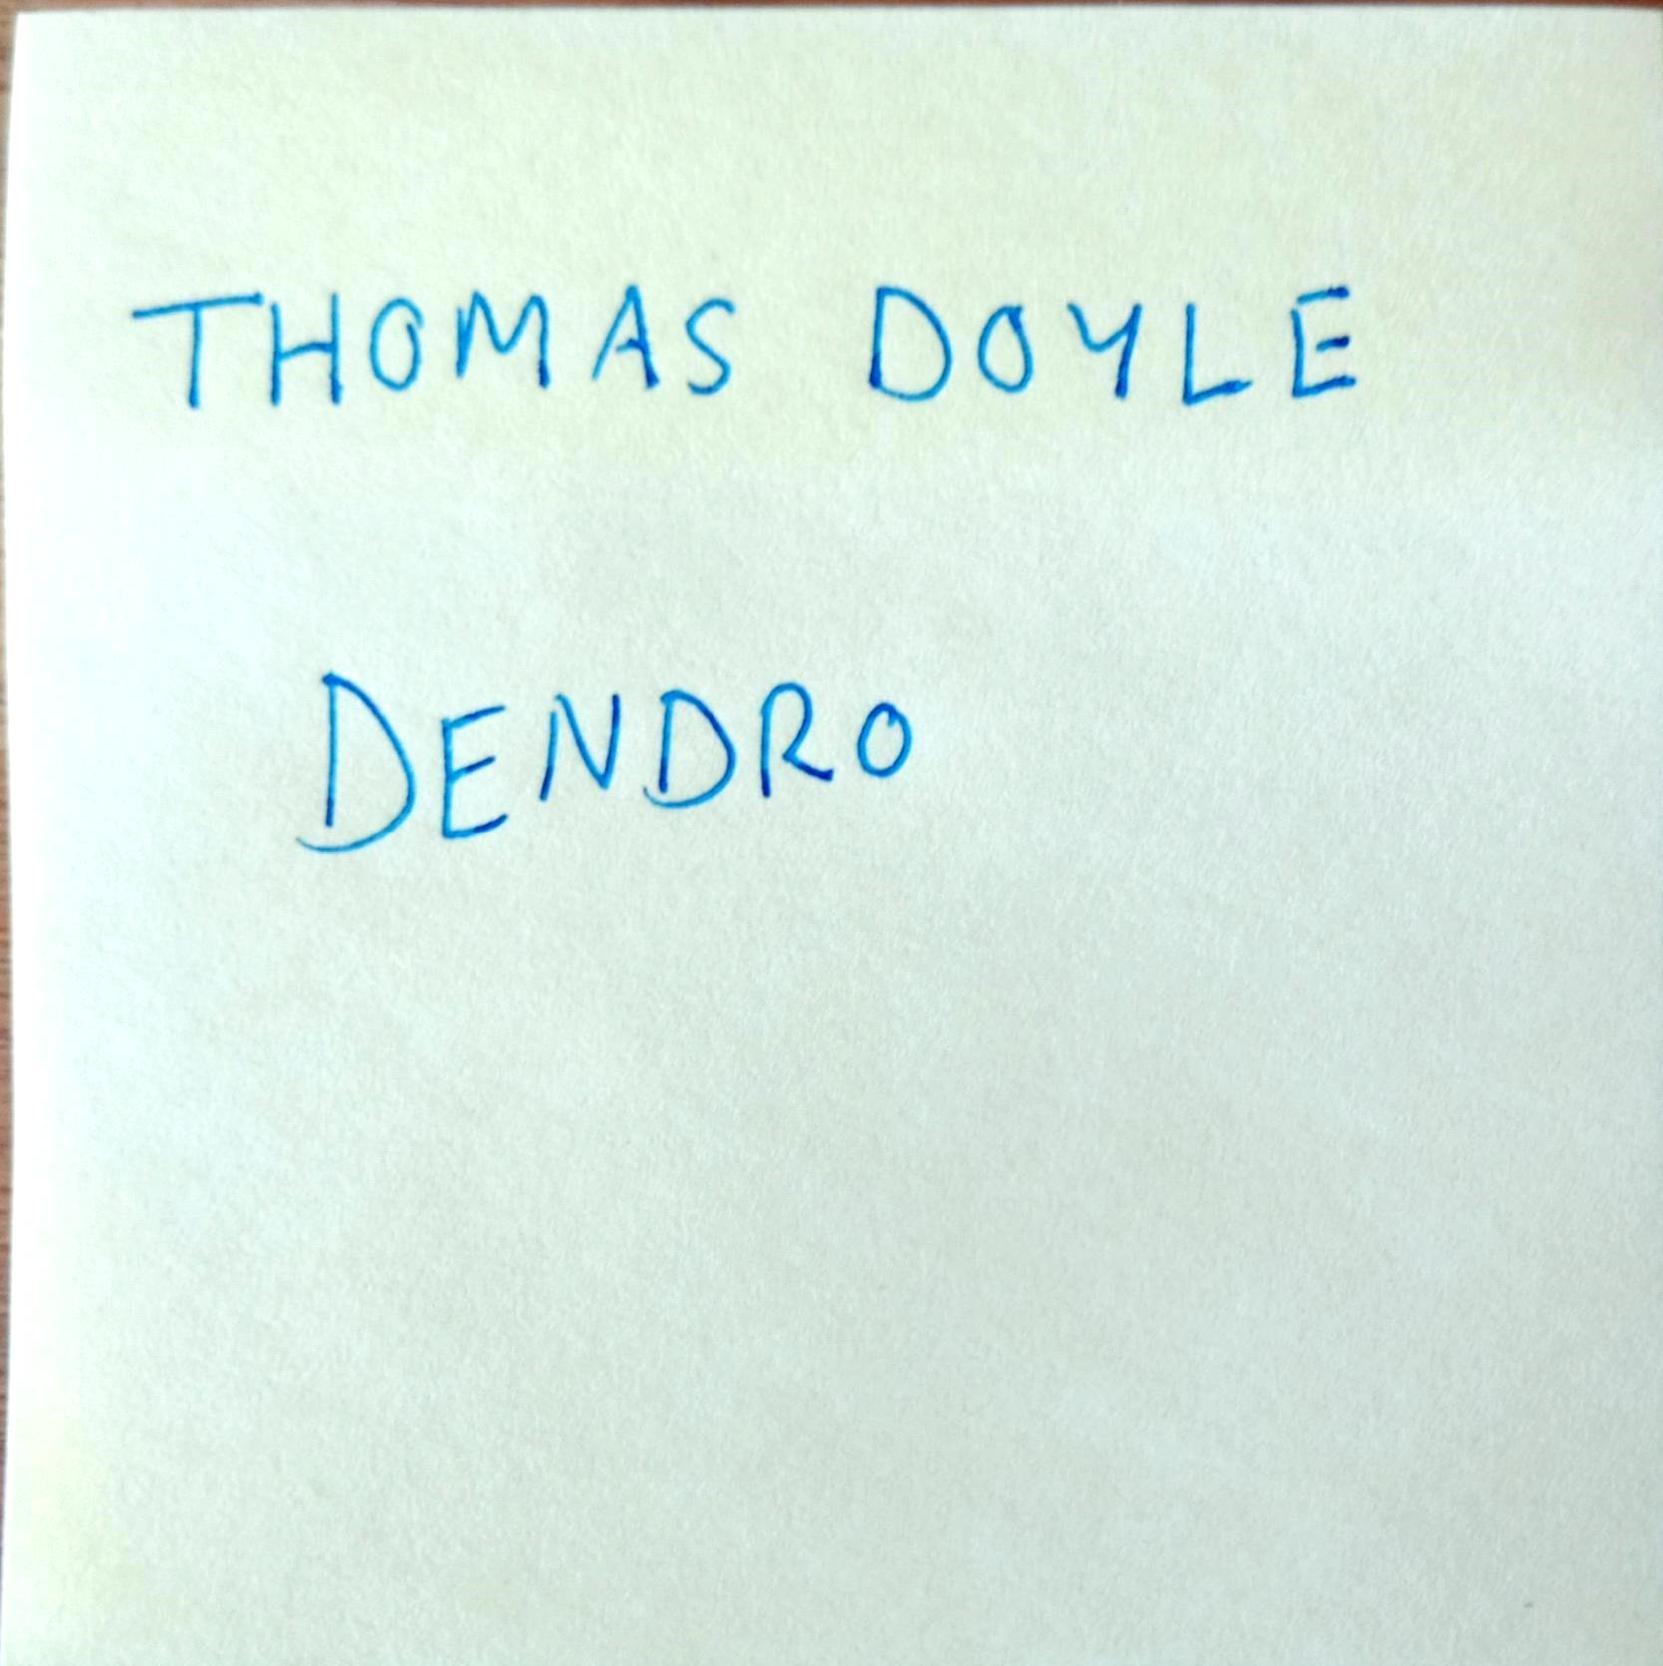 THOMAS DOYLE
DENDRO